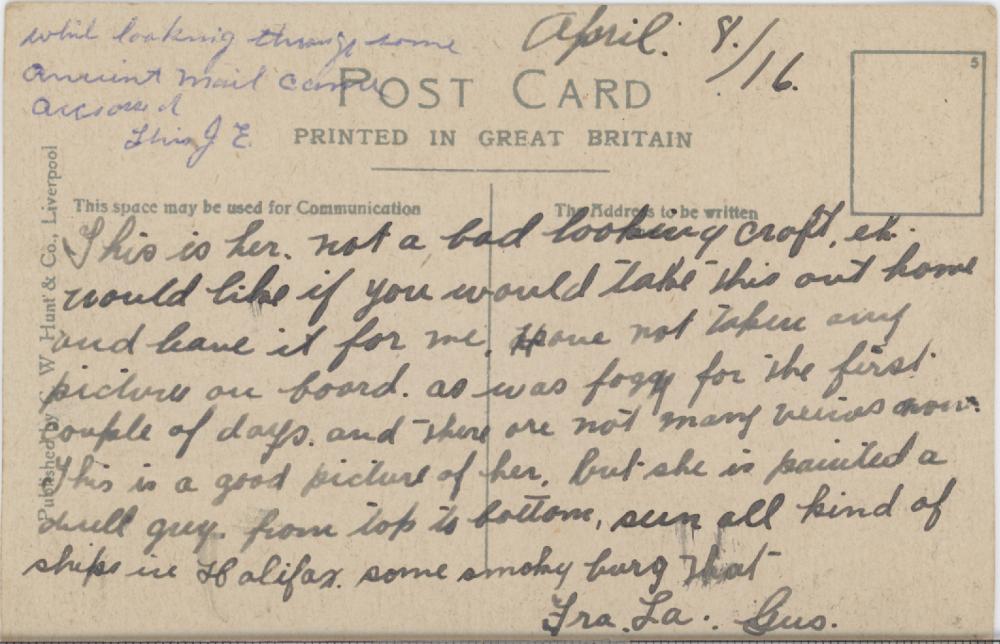 whil looking through some
Anncint mail came
Accrossed
this J E.
April. 8./16.
POST CARD
PRINTED IN GREAT BRITAIN
5
Published by C. W. Hunt & Co., Liverpool
This space may be used for Communication
The Address to be written
This is her. not a bad looking craft, eh.
would like if you would take this out home
and leave it for me. Have not taken any
picture on board. as was foggy for the first
couple of days. and there are not many veiws now.
This is a good picture of her, but she is painted a
dull grey. from top to bottom, seen all kind of
ships in Halifax. some smoky burg that
Tra. La. Gus.